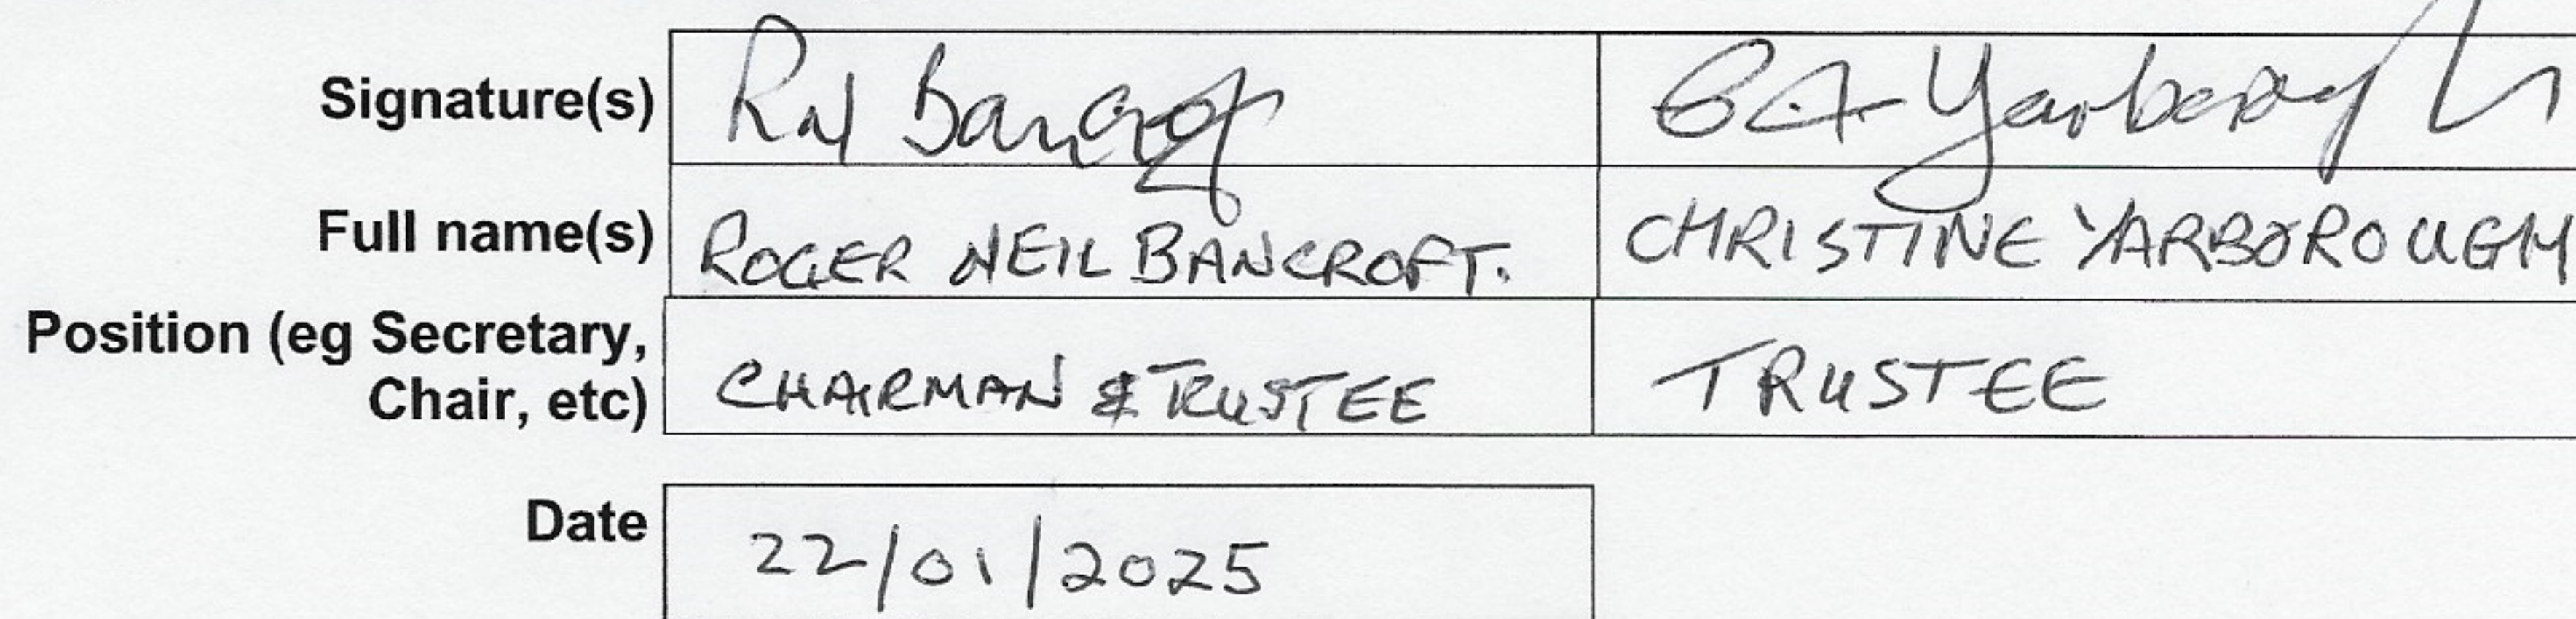 Signature(s) RN Bancroft CA Yarborough
Full name(s) ROGER NEIL BANCROFT. CHRISTINE YARBOROUGH
Position (eg Secretary,
Chair, etc) CHAIRMAN & TRUSTEE TRUSTEE
Date 22/01/2025